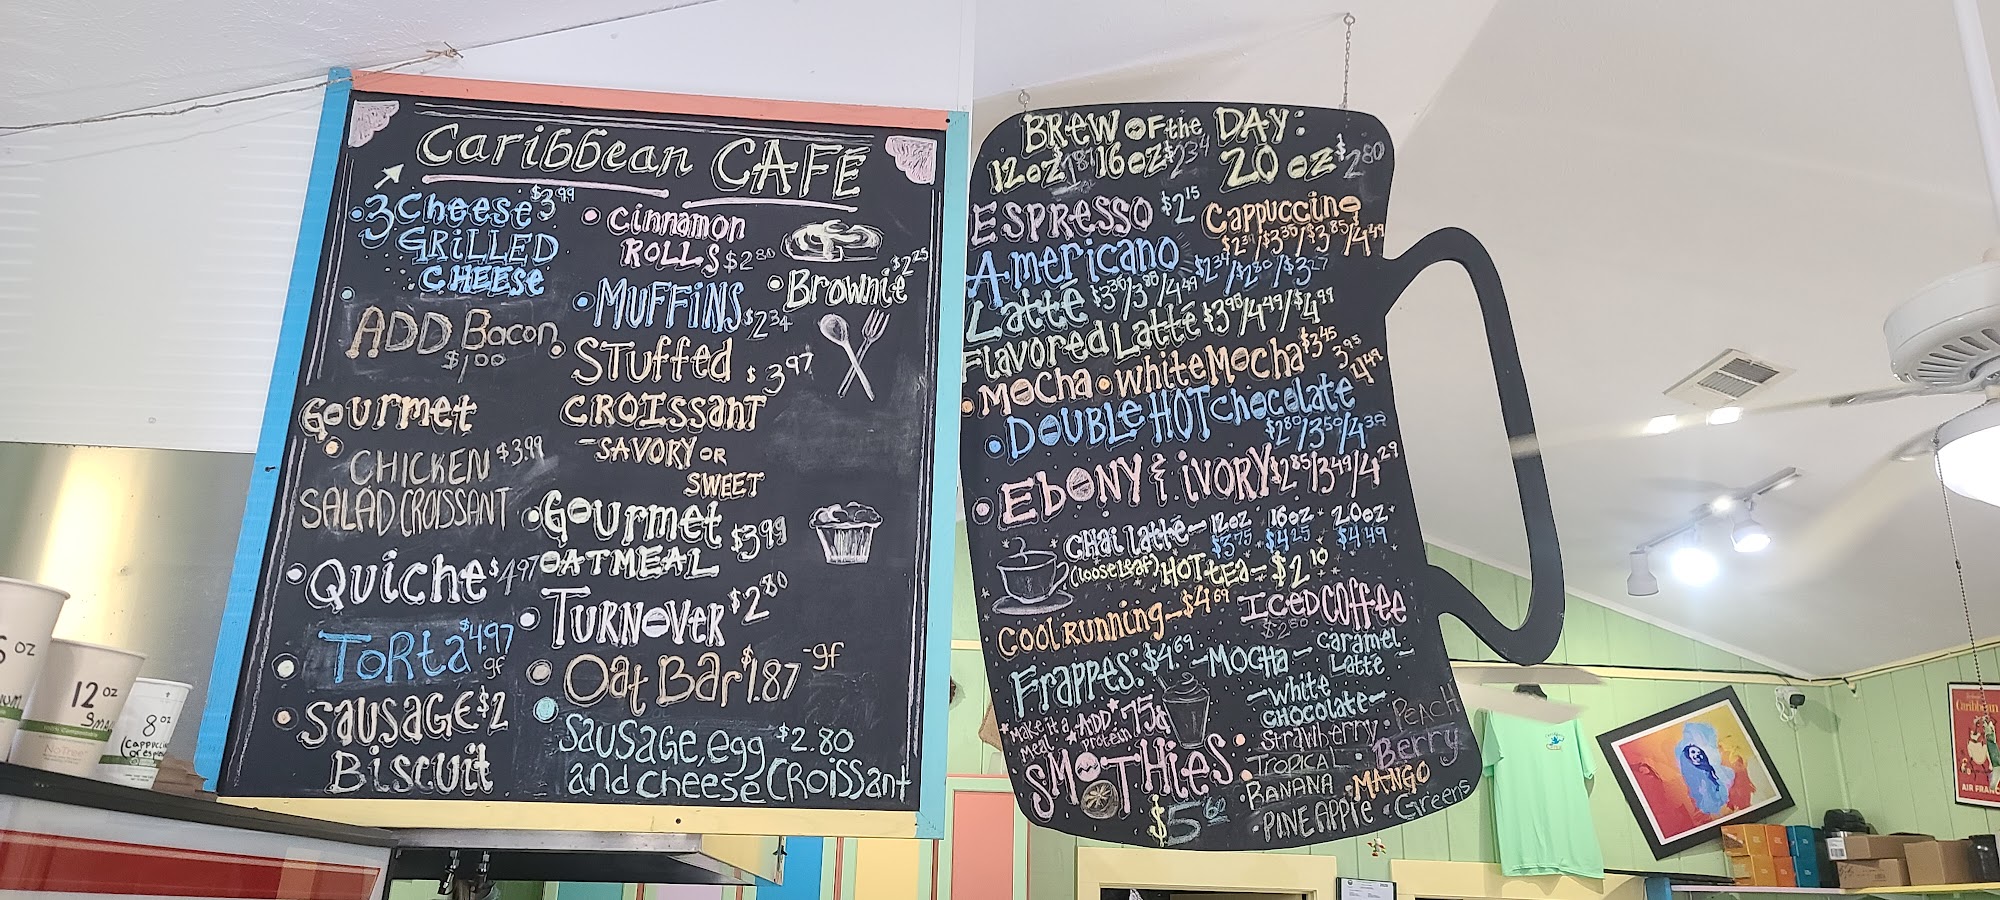 Caribbean CAFÉ
3 Cheese $3.99
GRILLED
CHEESE
ADD Bacon
$1.00
Gourmet
CHICKEN $3.99
SALAD CROISSANT
Quiche $4.97
TORta $4.97
gf
SAUSAGE $2
BiSCUIT
Cinnamon
ROLLS $2.80
Brownie $2.25
MUFFINS $2.34
STUFFED $3.97
CROISSANT
-SAVORY OR
SWEET
Gourmet $3.99
OATMEAL
TURNOVER $2.80
Oat Bar $1.87 -gf
Sausage, egg $2.80
and cheese CROISSANT
BREW OF the DAY:
12oz $1.87 16oz $2.34 20 oz $2.80
ESPRESSO $2.15 Cappuccino
$3.85/4.49
Americano $2.34/$2.80/$3.27
Latté 4.49
Flavored Latté 4.49/$4.99
MOCHA • white Mocha $3.45 3.95 4.49
DOUBLE HOT chocolate
$2.80/3.50
EbONY & iVORY $2.85/3.49/4.29
CHAi latté- 12oz 16oz 20oz
$3.75 $4.25 $4.49
(looseleaf) HOT tEA- $2.10
COOL RUNNING- $4.69 ICED COFFEE
$2.80
Frappes: $4.69 -MOCHA- Caramel
Latté -
-white
CHOCOLATE-
*Make it a *ADD* 75¢
meal protein
SMOTHiES:
$5.60
Strawberry • PEACH
TROPICAL • Berry
BANANA • MANGO
• PINEAPPlE • Greens
12 OZ
SMA
8 OZ
NoTree
Caribbean
AIR FRAN